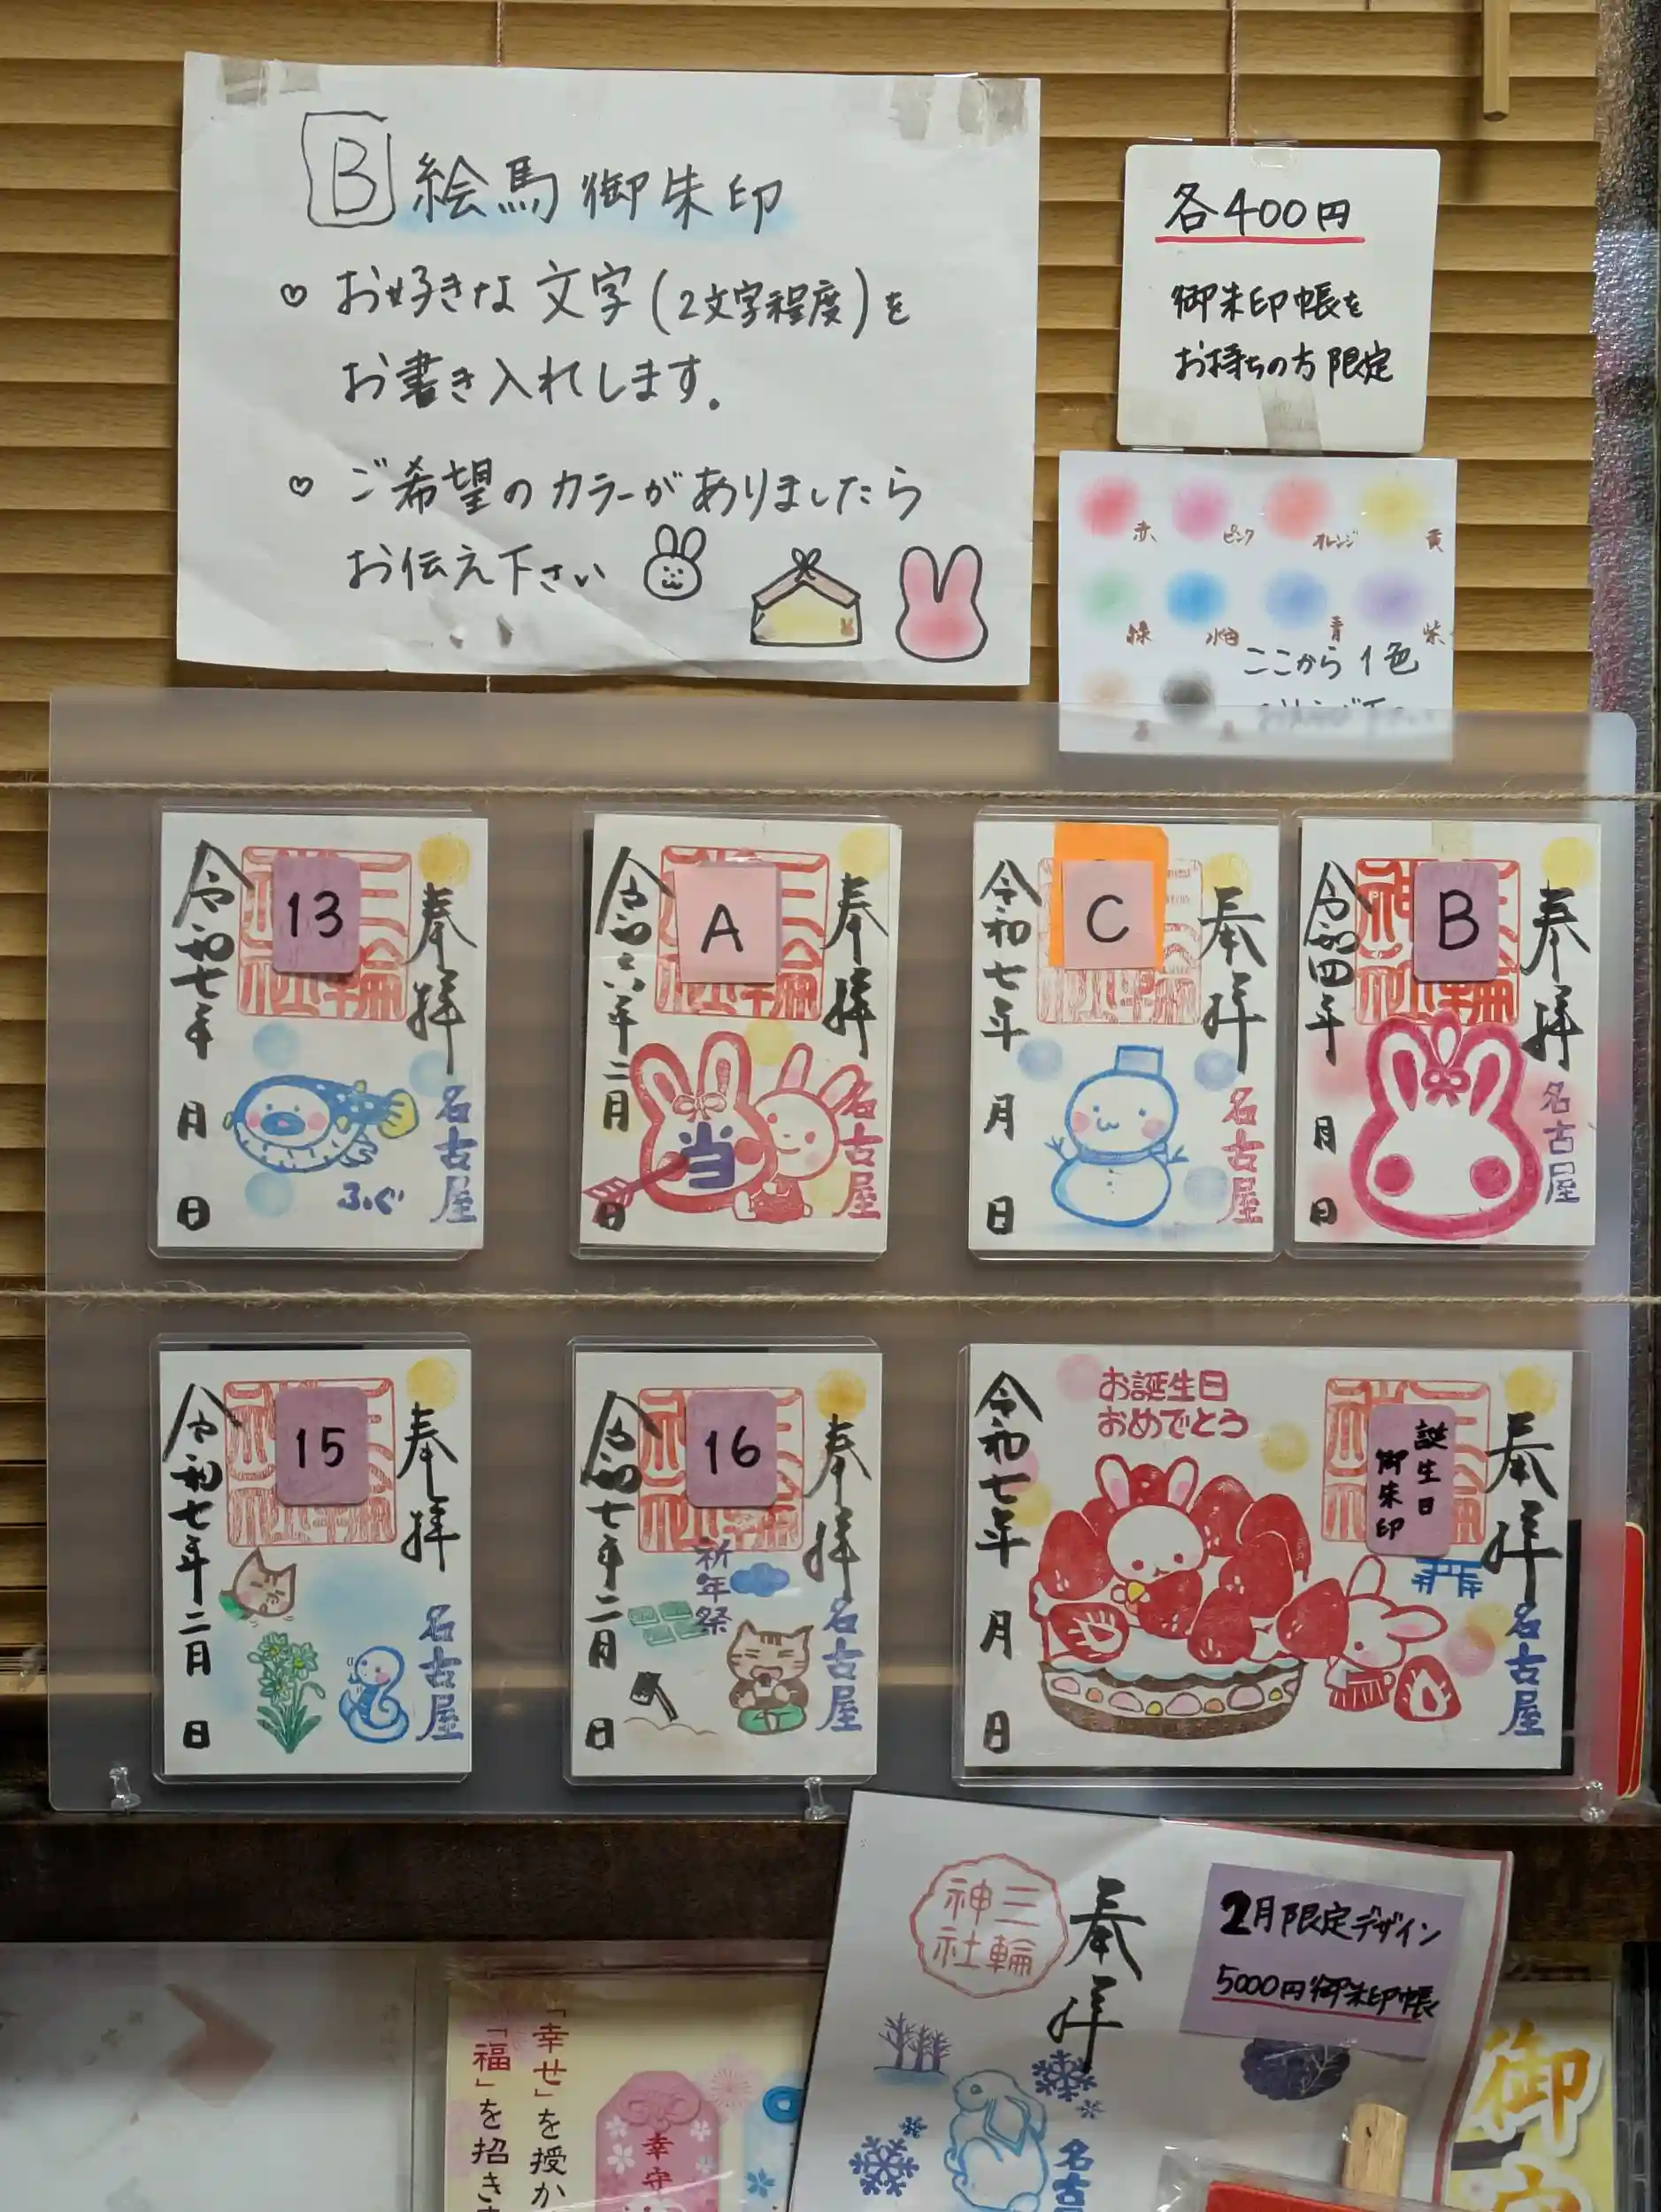 B 絵馬御朱印
♡ お好きな文字(2文字程度)を
お書き入れします。
♡ ご希望のカラーがありましたら
お伝え下さい
各400円
御朱印帳を
お持ちの方限定
赤 ピンク オレンジ 黄
緑 水色 青 紫
ここから1色
13
奉拝
令和七年 月 日
ふぐ
名古屋
A
奉拝
令和六年二月 日
当
名古屋
C
奉拝
令和七年 月 日
名古屋
B
奉拝
令和四年 月 日
名古屋
15
奉拝
令和七年二月 日
名古屋
16
奉拝
令和七年二月 日
祈年祭
名古屋
お誕生日
おめでとう
誕生日
御朱印
奉拝
令和七年 月 日
名古屋
三輪
神社
奉拝
2月限定デザイン
5000円御朱印帳
名古
「幸せ」を授か
「福」を招き
幸守
御